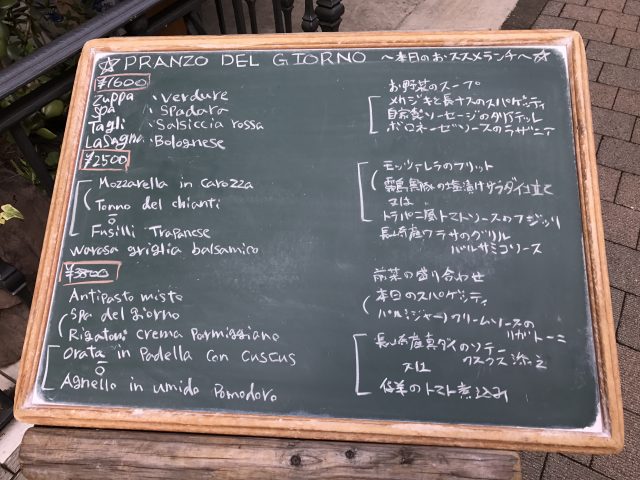 ☆PRANZO DEL GIORNO ～本日のおススメランチ～☆
¥1600
Zuppa ・verdure お野菜のスープ
Spa ・Spadara メカジキと長ナスのスパゲッティ
Tagli ・Salsiccia rossa 自家製ソーセージのタリアテッレ
Lasagna ・Bolognese ボロネーゼソースのラザニア
¥2500
Mozzarella in carozza モッツァレラのフリット
Tonno del chianti 黒豚の塩漬けサラダ仕立て
o 又は
Fusilli Trapanese トラパニ風トマトソースのフジッリ
warasa griglia balsamico 長崎産ワラサのグリル
バルサミコソース
¥3800
Antipasto misto 前菜の盛り合わせ
Spa del giorno 本日のスパゲッティ
Rigatoni crema Parmiggiano パルミジャーノクリームソースの
リガトーニ
Orata in Padella con Cuscus 長崎産真ダイのソテー
クスクス添え
o 又は
Agnello in umido Pomodoro 仔羊のトマト煮込み